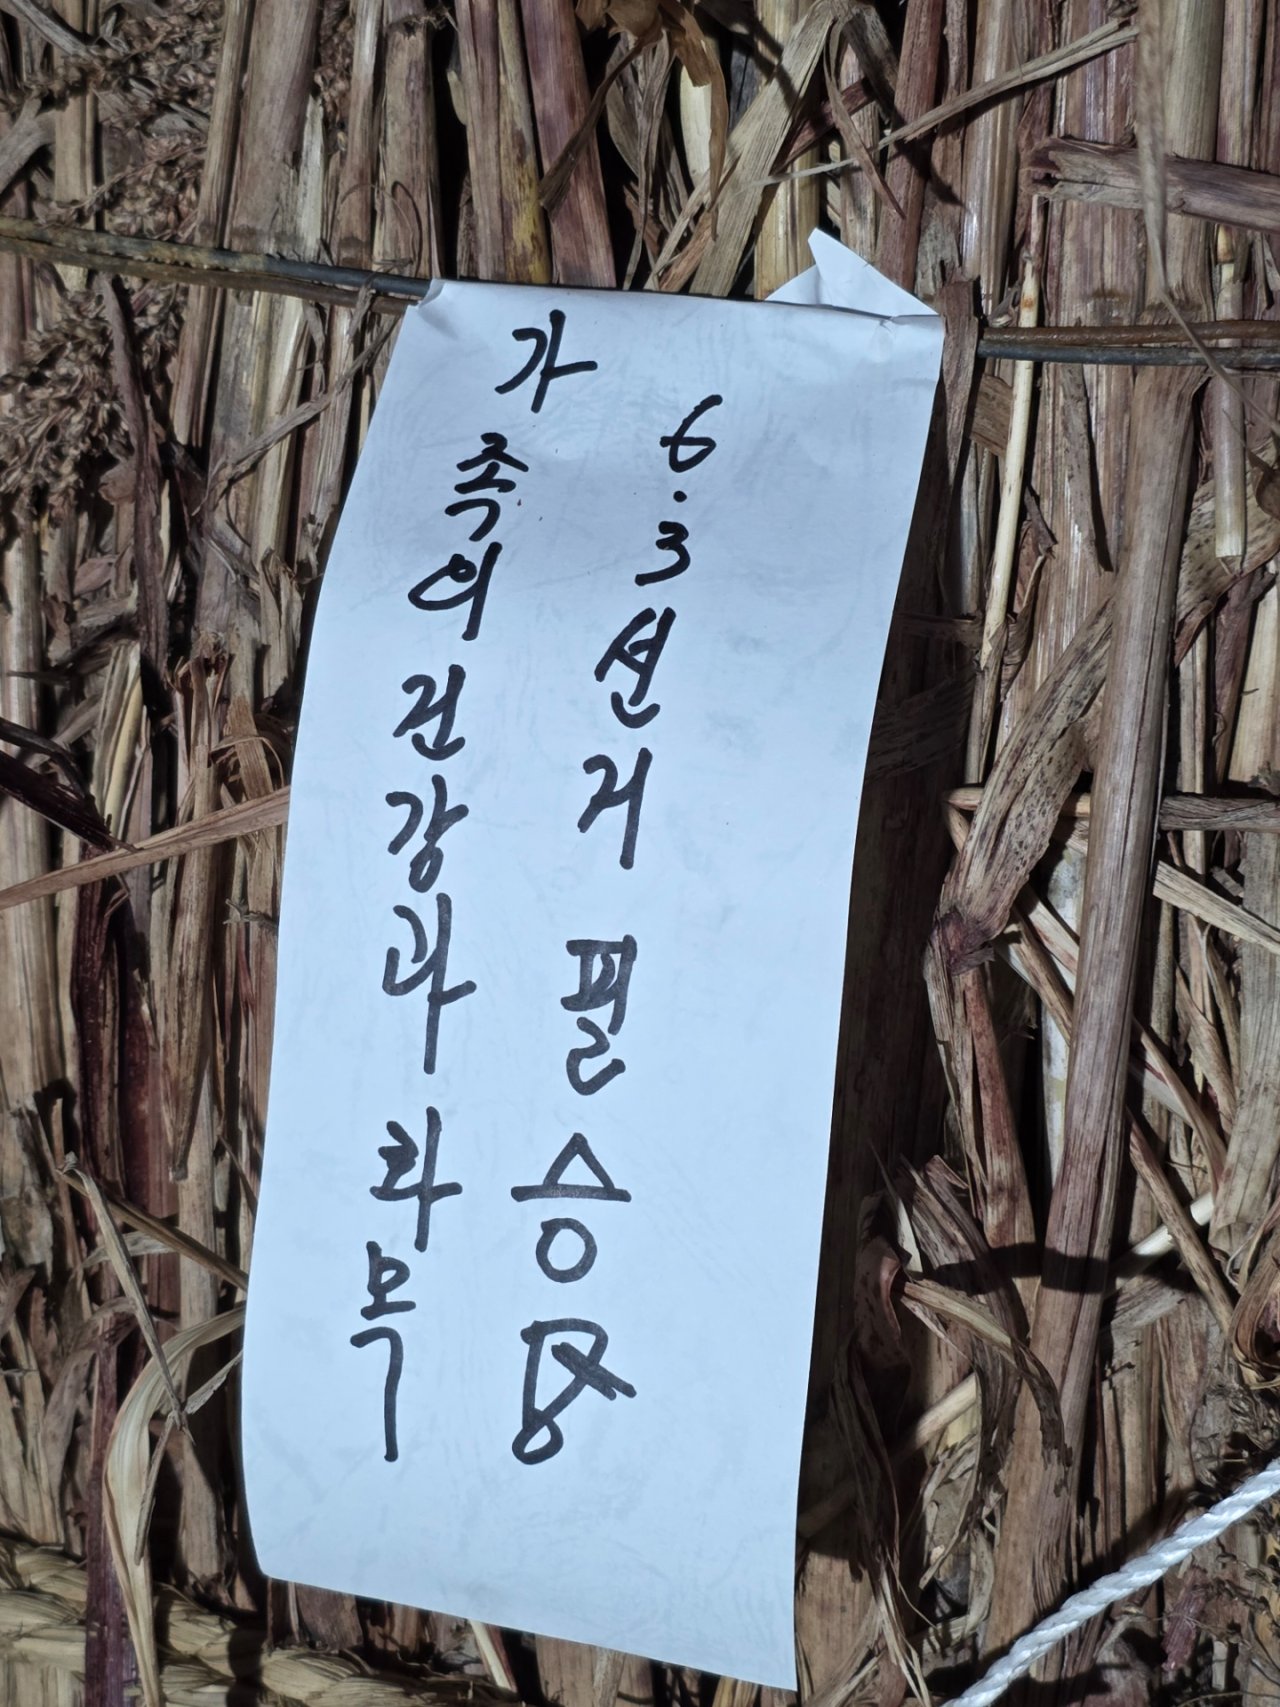 가족의 건강과 화목
6.3 선거 필승